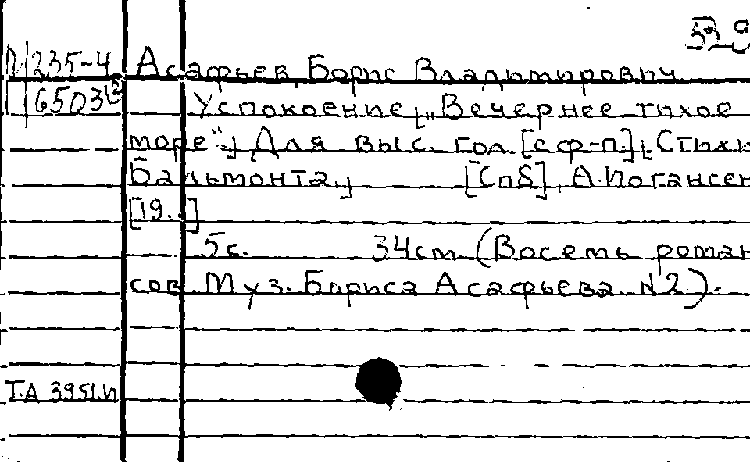 529
П 235-4 Асафьев, Борис Владимирович
6503 Успокоение. [„Вечернее тихое
море"]. Для выс. гол. [с ф-п.]. [Стихи
Бальмонта.] [СпБ], А. Иогансен
[19. .]
5 с. 34 см (Восемь роман
сов. Муз. Бориса Асафьева. №2).
Т.А 3951.И